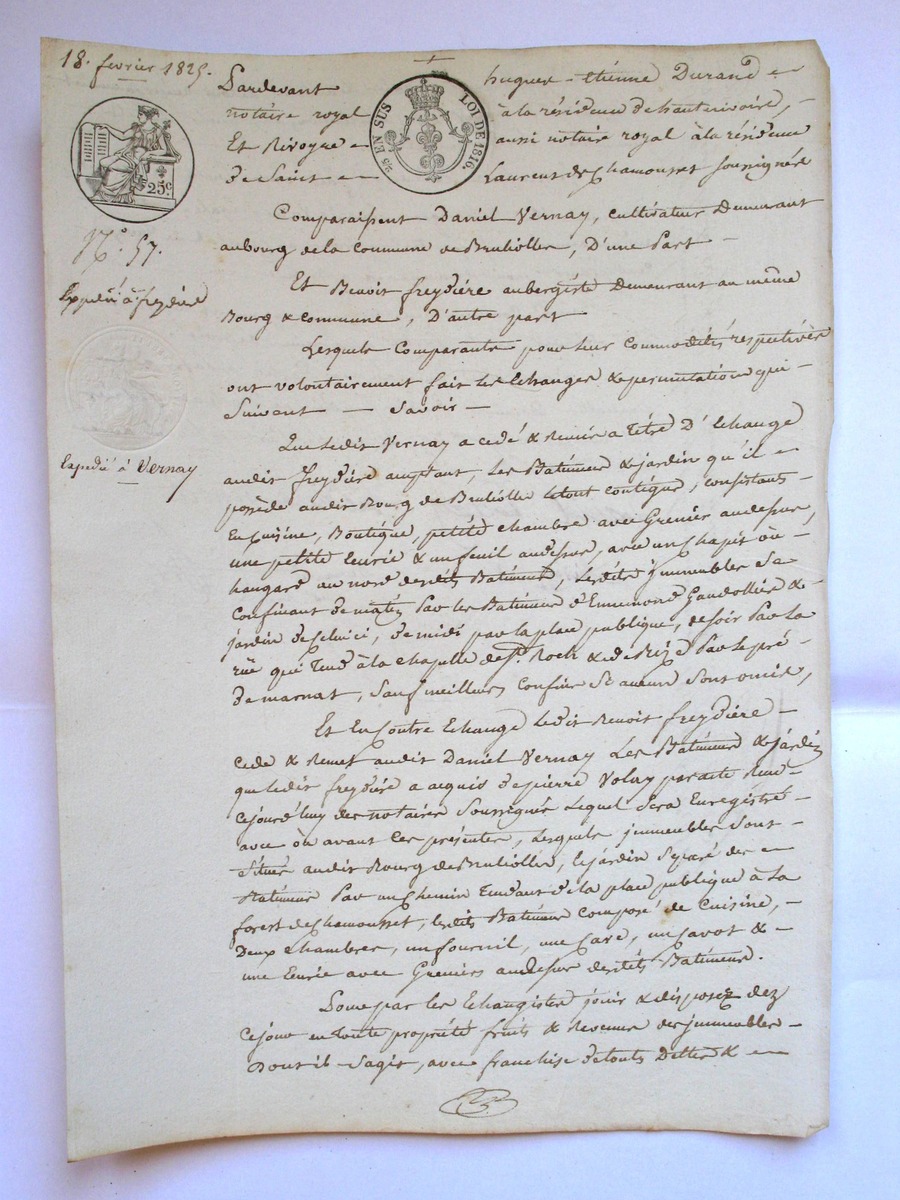 18. fevrier 1825.
Pardevant hugues - étienne Durand
notaire royal à la résidence de hauterivoire,
Et Rivoyre aussi notaire royal à la résidence
de Saint Laurent de Chamousset soussignés
25 EN SUS
LOI DE 1816.
25c.
N.o 57.
Expédié à freydière
Expedié à Vernay
Comparaissent Daniel Vernay, cultivateur Demeurant
au bourg de la Commune de Brulliolles, D'une Part
Et Benoit freydière aubergiste Demeurant au même
Bourg & commune, D'autre part
Lesquels Comparants pour leur Commodités respectives
ont volontairement fait les Echanges & permutations qui
Suivent - Savoir -
Que ledit Vernay a cedé & Remis a Titre D'Echange
audit freydière acceptant, Les Batiments & jardin qu'il
possède audit Bourg de Brulliolles le tout contigue, consistants
En Cuisine, Boutique, petite chambre avec Grenier au dessus,
une petite Ecurie & un feuil au dessus, avec un Chapis où
hangard au nord desdits Batiments, Lesdits immeubles Se
confinant de matin Par les Batiments d'Ennemond Gaudollier &
jardin de celui ci, de midi par la place publique, de soir Par la
rüe qui Tend à la chapelle de St. Roch & de Bize Par le pré
de marnat, Sauf meilleurs confins Si aucuns Sont omis,
Et En Contre Echange ledit Benoit freydière
cede & Remet audit Daniel Vernay Les Batiments & jardin
que ledit freydière a acquis de pierre Volay par acte Rendu
cejourd'huy des notaires Soussignés lequel Sera Enregistré
avec où avant Ces présentes, Lesquels immeubles Sont
Situés audit Bourg de Brulliolles, le jardin Séparé des
Batiments Par un Chemin Tendant de la place publique à la
forest de Chamousset, lesdits Batiments Composé de Cuisine,
Deux chambres, un fournil, une Cave, un Cavot &
une Ecurie avec Greniers au dessus desdits Batiments.
Pour par les Echangistes jouir & disposer dez
Cejour en Toute propriété fruits & Revenus des immeubles
Dont il Sagit, avec franchise de touts Dettes &